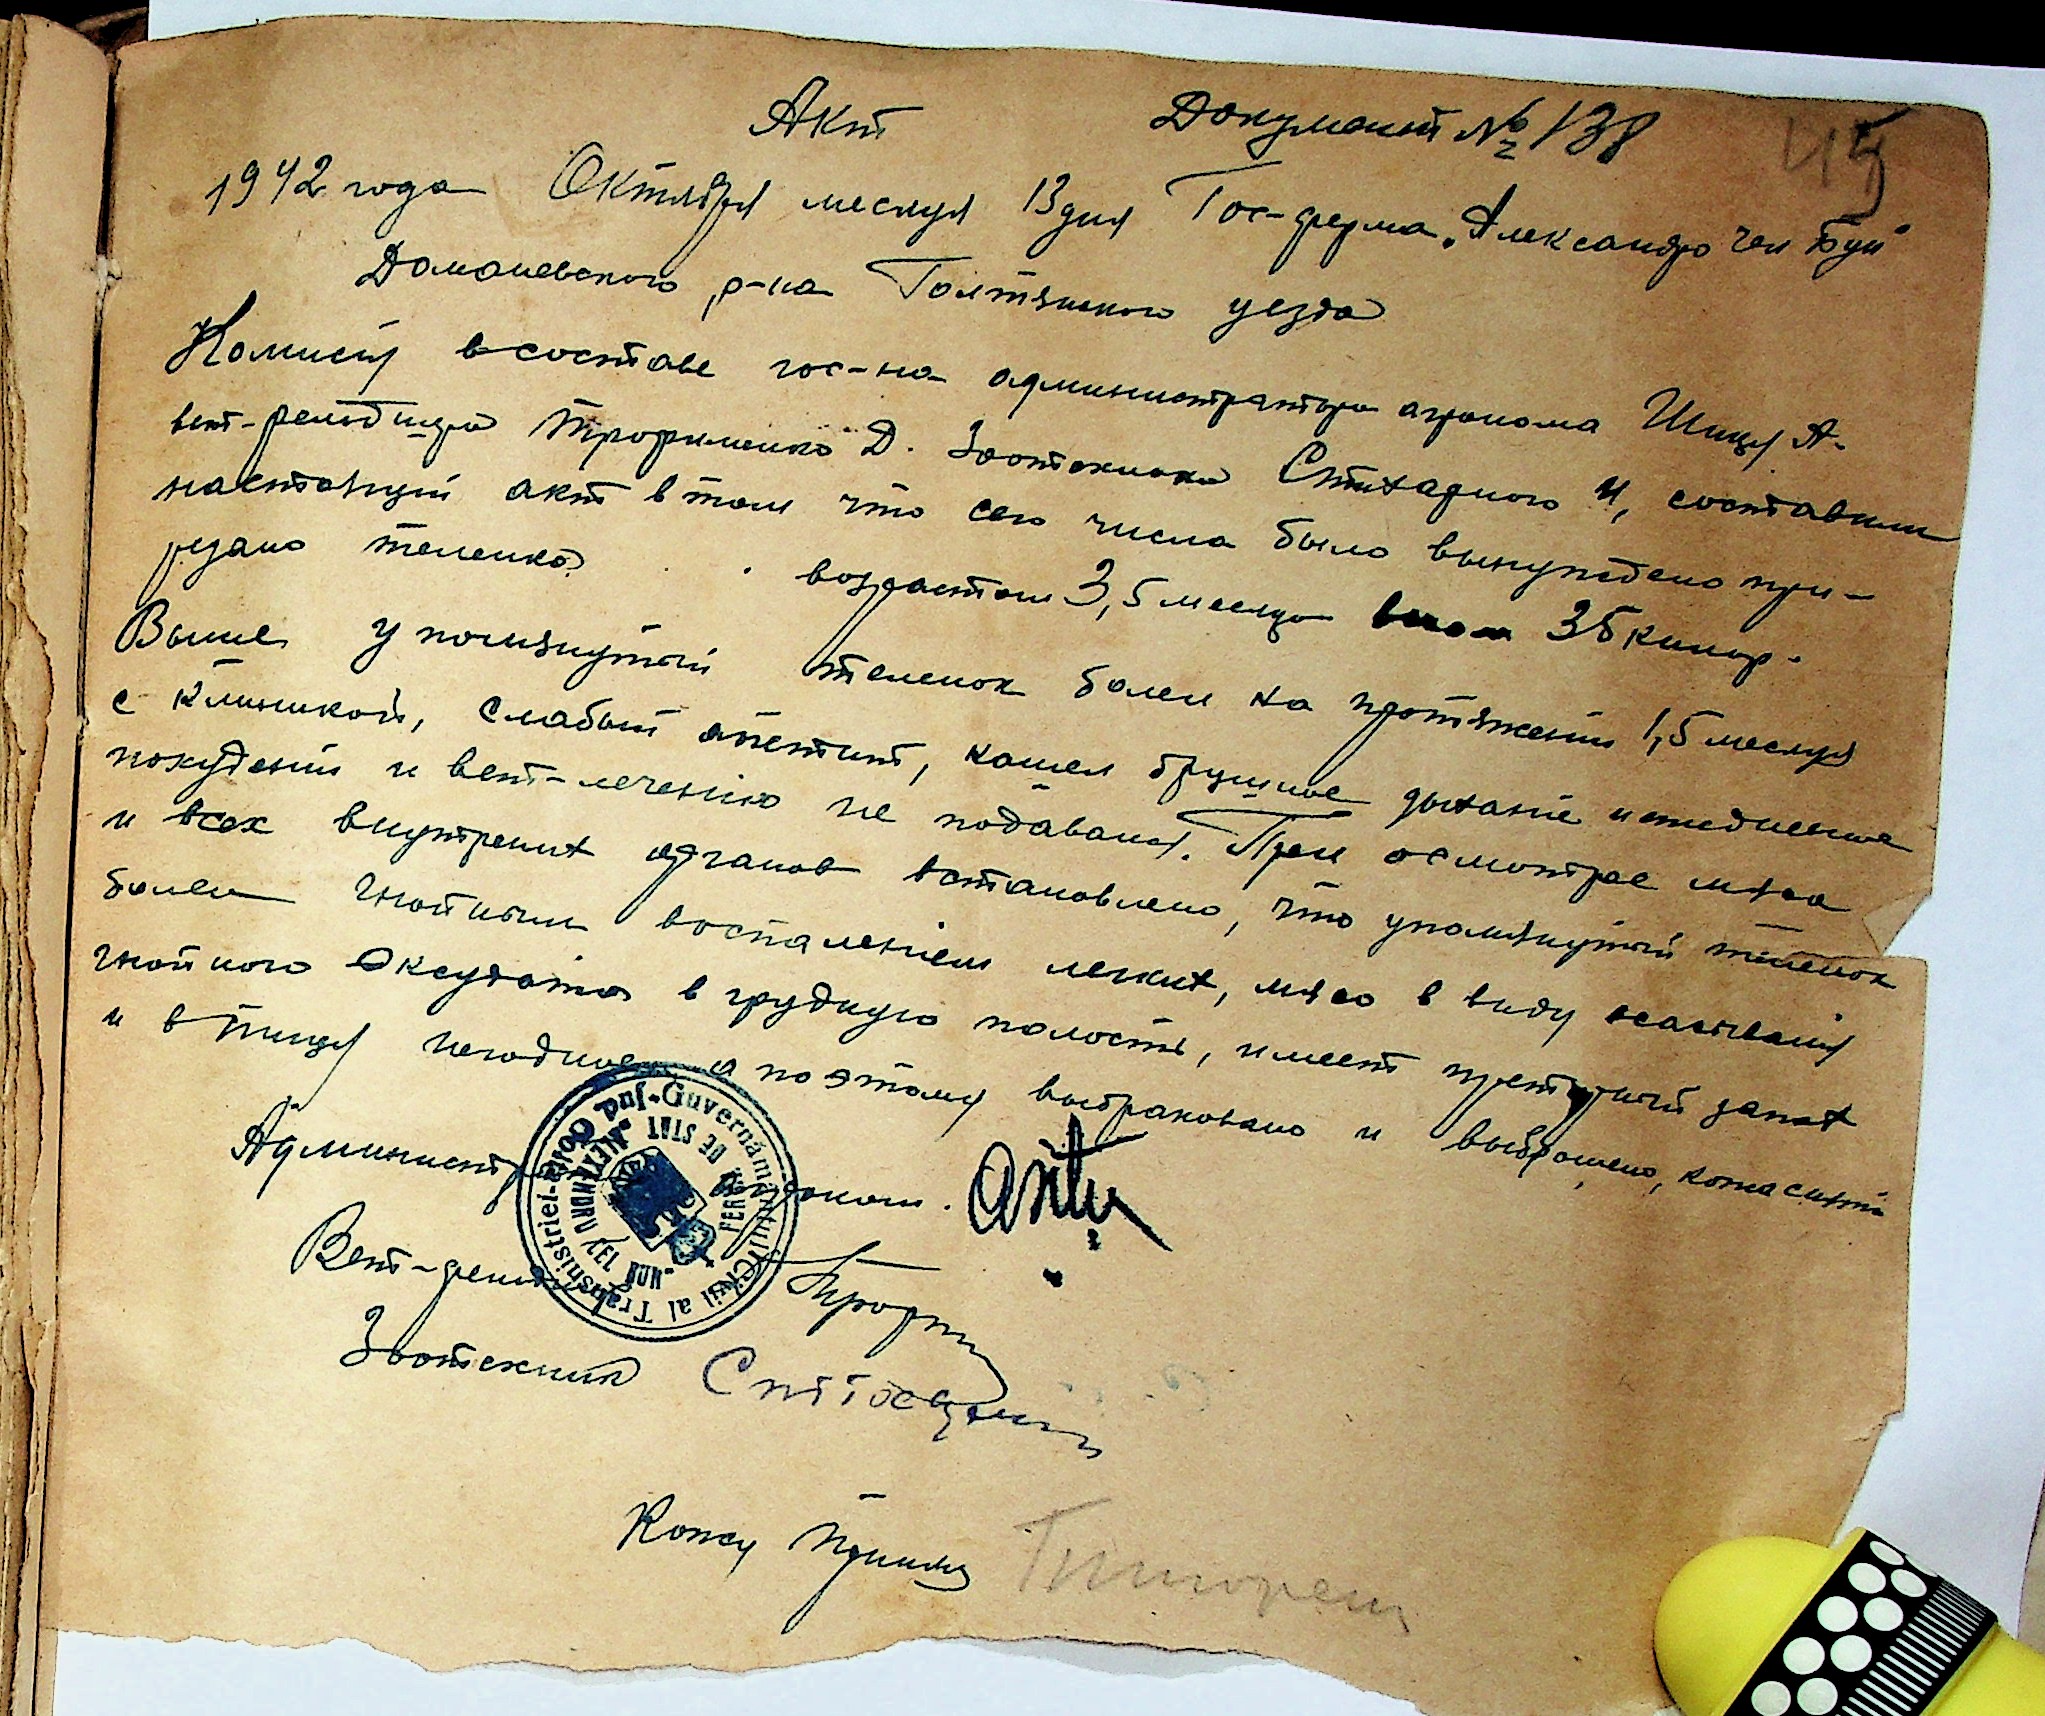 Акт Документ № 138
45
1942 года Октября месяця 13 дня Гос-ферма „Александро чел Бун"
Доманевского р-на Голтянского уезда
Комисия в составе гос-на администратора агронома Шицу А.
вет-фельдшера Трофименко Д. Зоотехника Стихарного И, составили
настоящий акт в том что сего числа было вынуждено при-
резано теленка возрастом 3,5 месяца весом 35 килогр.
Выше упомянутый теленок болел на протяжении 1,5 месяця
с клиникой, слабый апетит, кашел брушное дыхание и ежедневное
похудений и вет-лечению не подавался. При осмотре мяса
и всех внутрених органов встановлено, что упомянутый теленок
болел гнойным воспалением легких, мясо в виду всасывания
гнойного Оксудата в грудную полость, имеет претурный запах
и в пищу негодное а поэтому выбраковано и выброшено, кожа снята
Администр агроном.
Вет-фельд Трофим
Зоотехник
Кожу принял
Guvernământul Civil al Transnistriei-Jud. Golta
FERMA DE STAT
„ALEXANDRU CEL BUN"